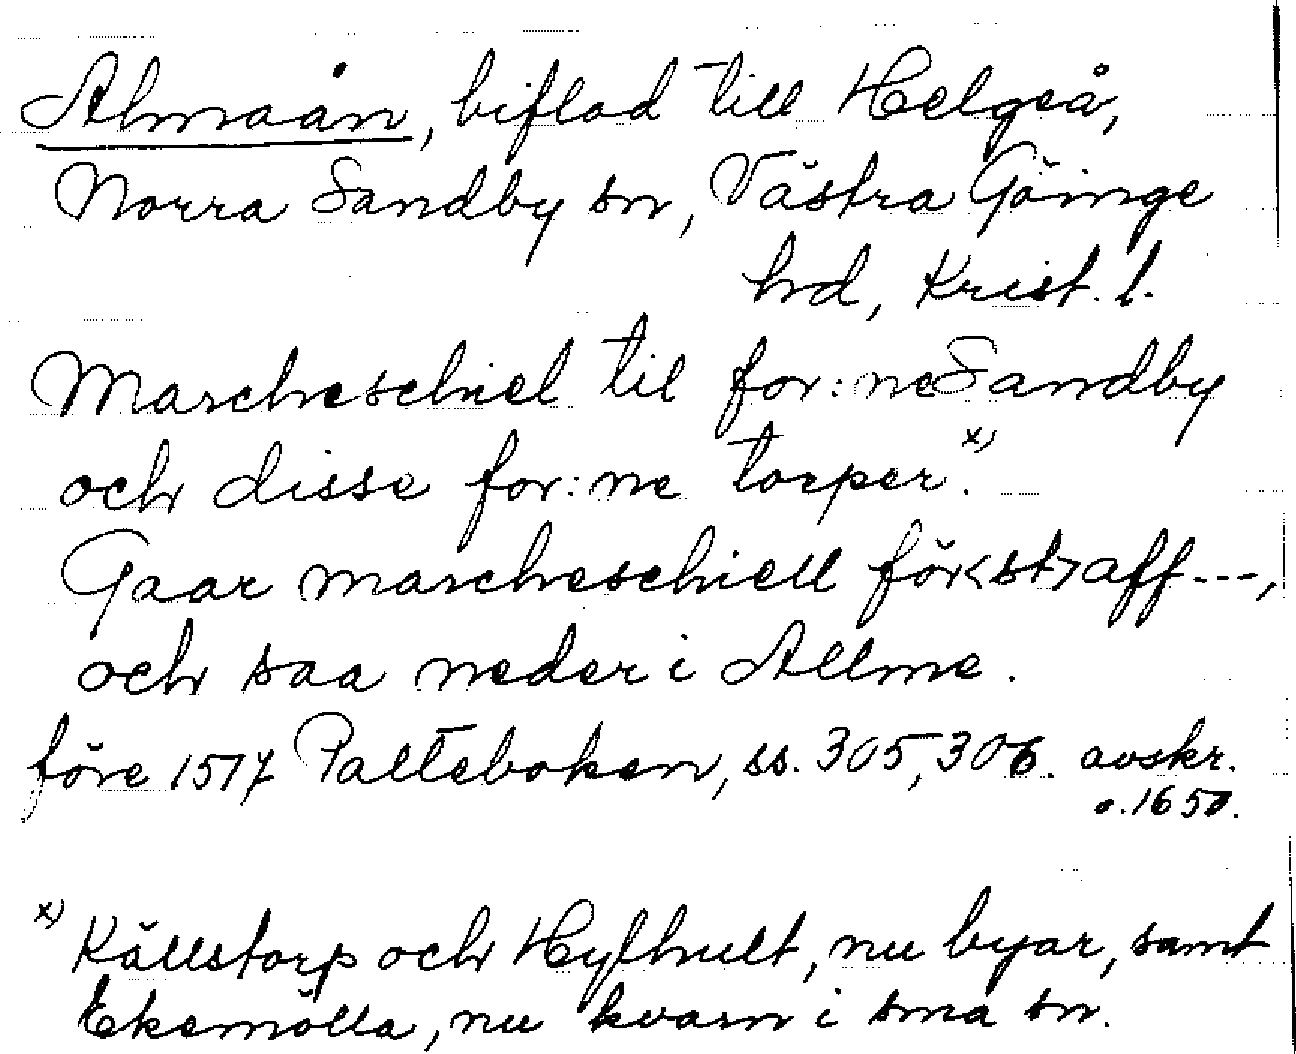 Almaån, biflod till Helgeå,
Norra Sandby sn, Västra Göinge
hd, Krist. l.
Marcheschiel til for:ne Sandby
och disse for:ne torper". x)
Gaar marcheschiell först aff---,
och saa neder i Allme.
före 1517 Palteboken, ss. 305, 306. avskr.
o. 1650.
x) Källstorp och Hylhult, nu byar, samt
Ekemölla, nu kvarn i sma sn.